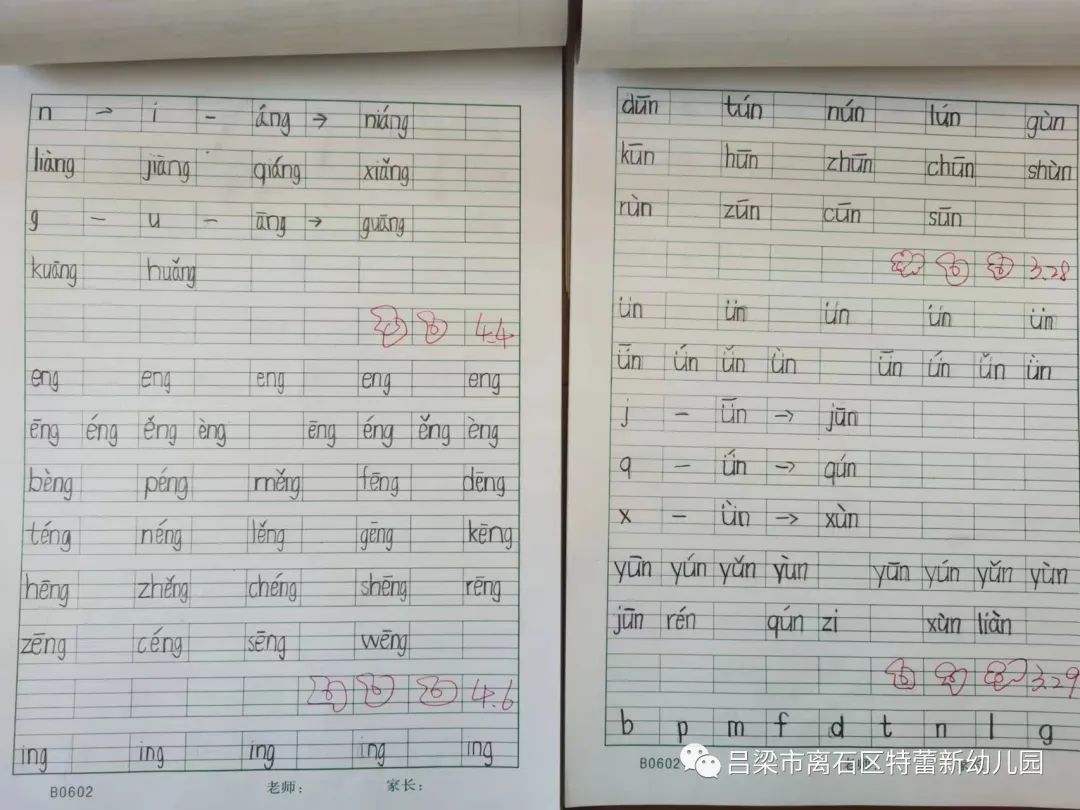 n → i - áng → niáng
liàng jiāng qiáng xiǎng
g - u - āng → guāng
kuāng huǎng
4.4
eng eng eng eng eng
ēng éng ěng èng ēng éng ěng èng
bèng péng měng fēng dēng
téng néng lěng gēng kēng
hēng zhěng chéng shēng rēng
zēng céng sēng wēng
4.6
ing ing ing ing ing
B0602 老师: 家长:
dūn tún nún lún gùn
kūn hūn zhūn chūn shùn
rùn zūn cūn sūn
3.28
ün ün ün ün ün
ǖn ǘn ǚn ǜn ǖn ǘn ǚn ǜn
j - ǖn → jūn
q - ǘn → qún
x - ǜn → xùn
yūn yún yǔn yùn yūn yún yǔn yùn
jūn rén qún zi xùn liàn
3.29
b p m f d t n l g
B0602
吕梁市离石区特蕾新幼儿园